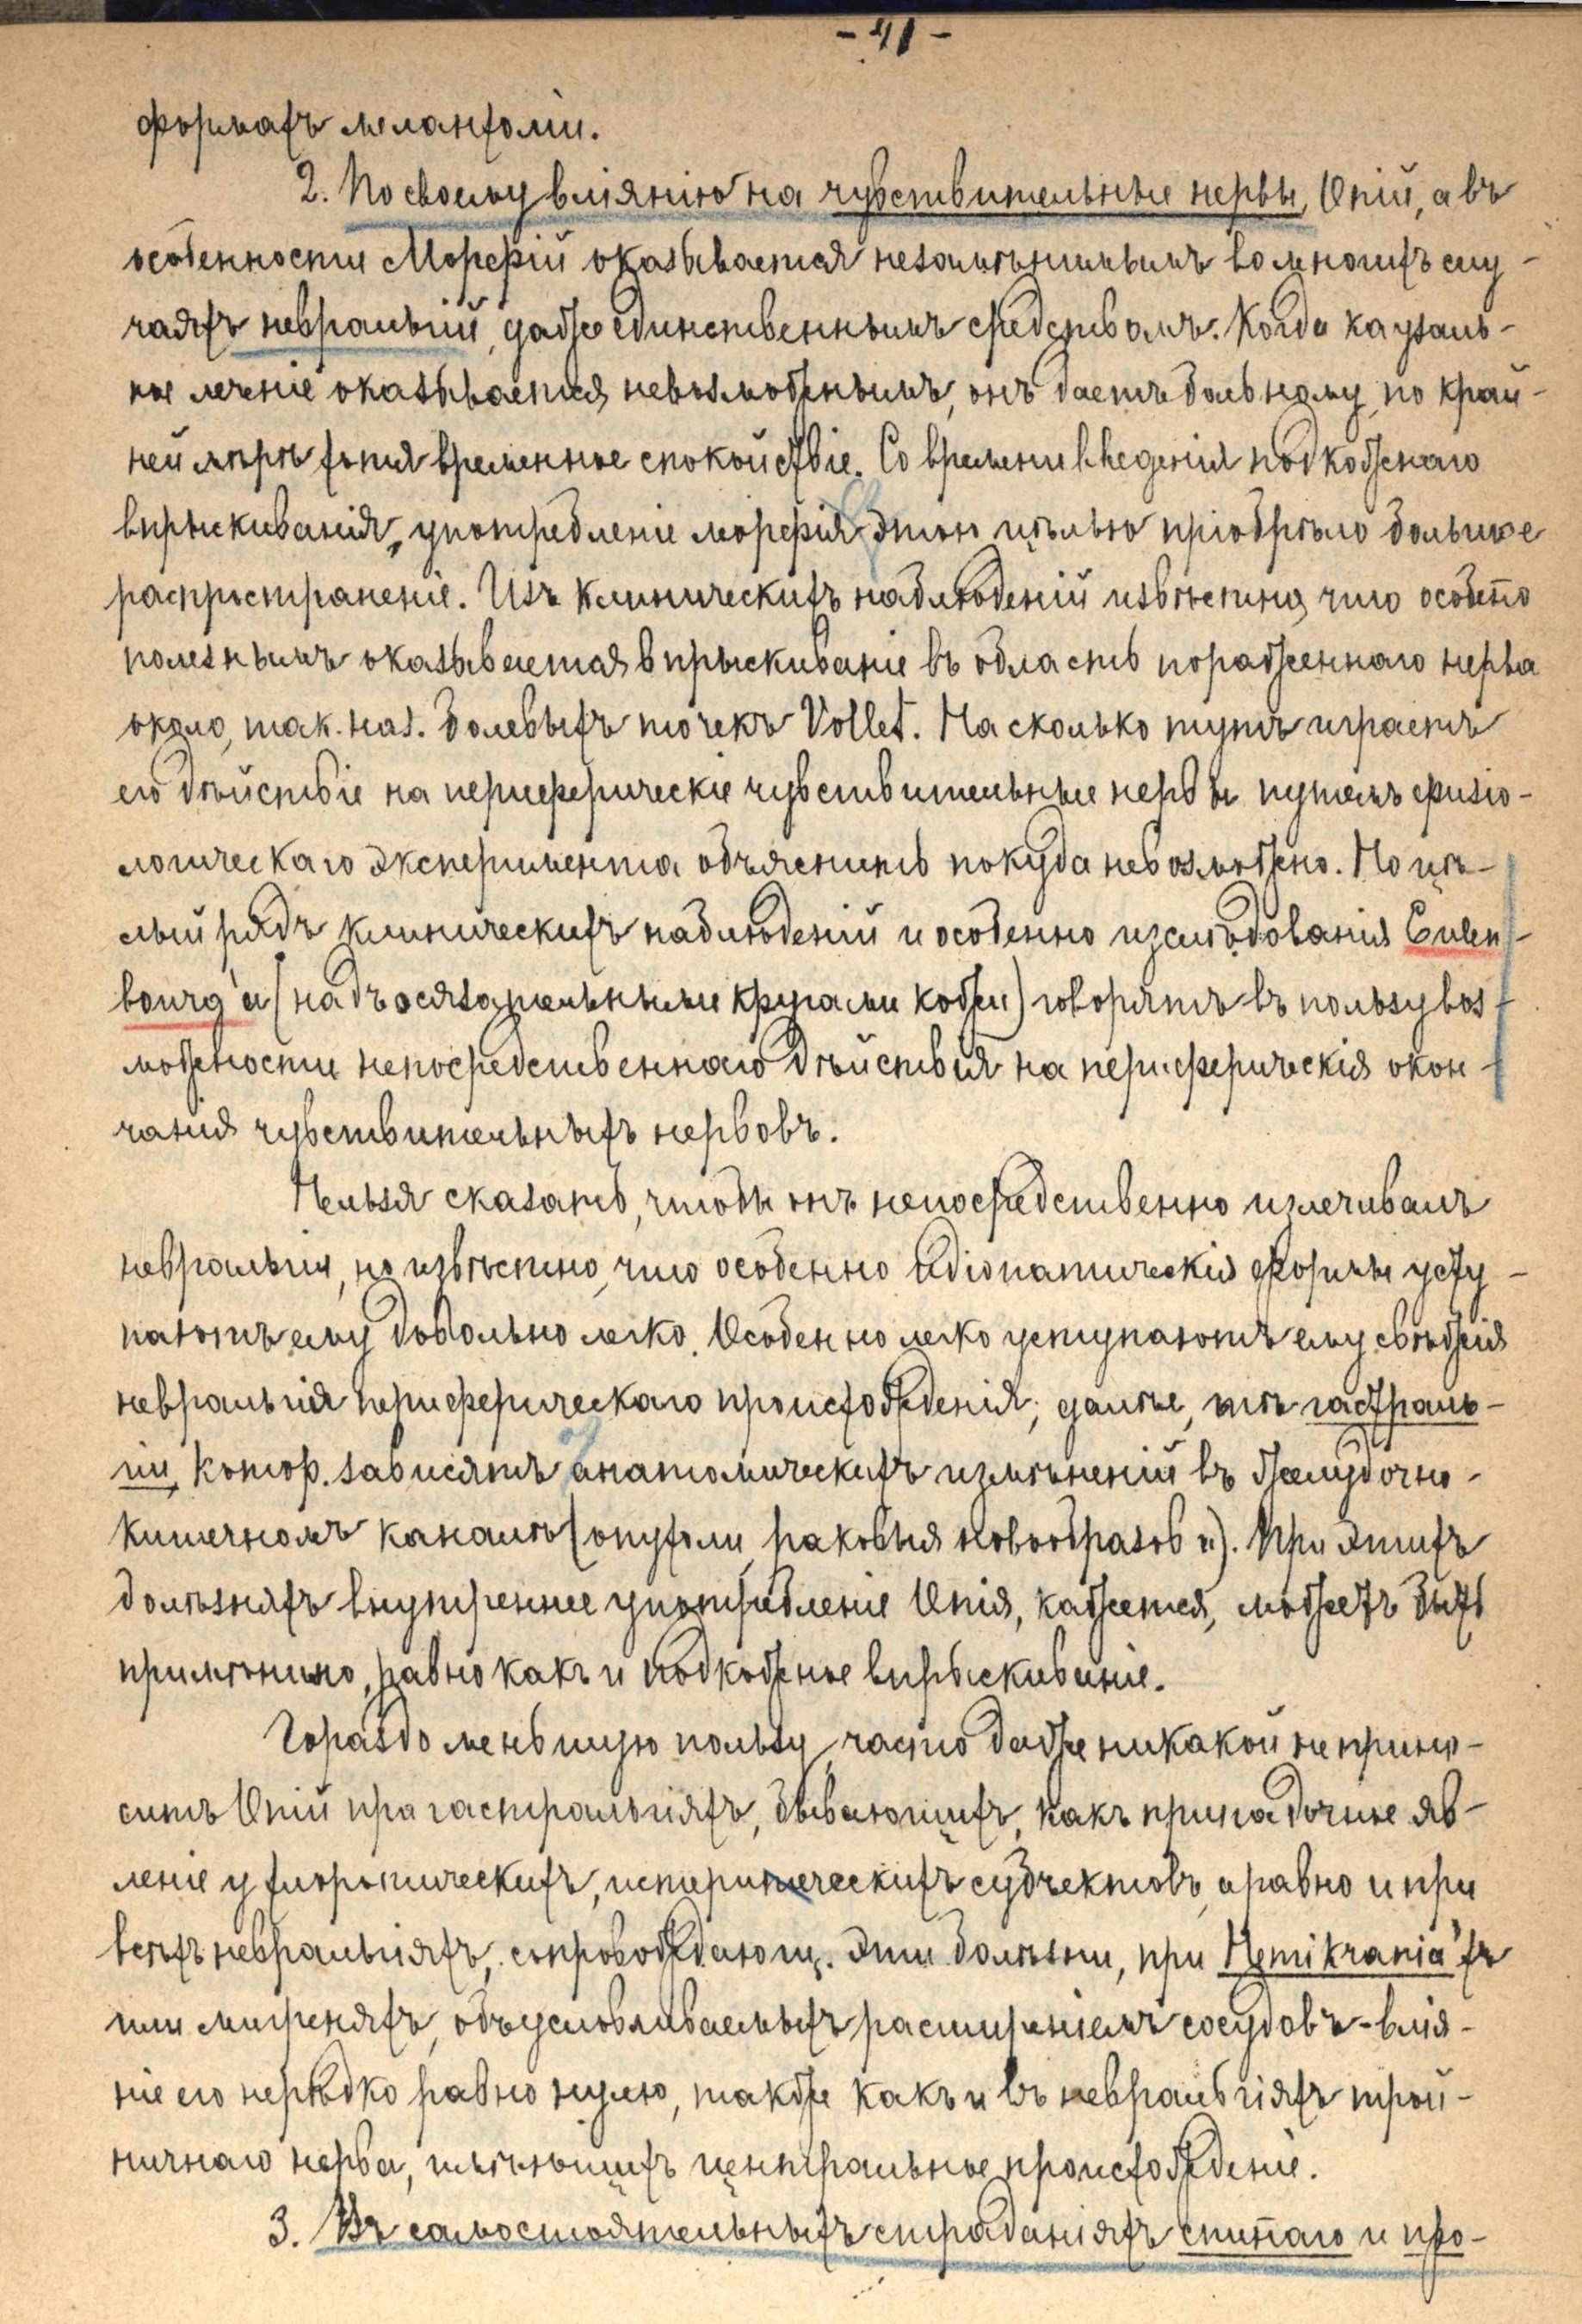 - 41 -
формахъ меланхоліи.
2. По своему вліянію на чувствительные нервы, Опій, а въ
особенности Морфій оказывается незамѣнимымъ во многихъ слу-
чаяхъ невралгій, даже единственнымъ средствомъ. Когда каузаль-
ное леченіе оказывается невозможнымъ, онъ даетъ больному по край-
ней мѣрѣ хотя временное спокойствіе. Со времени введенія подкожнаго
впрыскиванія, употребленіе морфія съ этою цѣлью пріобрѣло большое
распространеніе. Изъ клиническихъ наблюденій извѣстно, что особено
полезнымъ оказывается впрыскиваніе въ область пораженнаго нерва
около, так. наз. болевыхъ точекъ Vollet. На сколько тутъ играетъ
его дѣйствіе на периферическіе чувствительные нервы путемъ физіо-
логическаго эксперимента объяснить покуда невозможно. Но цѣ-
лый рядъ клиническихъ наблюденій и особенно изслѣдованія Eulen-
bourg'a (надъ осязательными кругами кожи) говорятъ въ пользу воз-
можности непосредственнаго дѣйствія на периферическія окон-
чанія чувствительныхъ нервовъ.
Нельзя сказать, чтобы онъ непосредственно излечивалъ
невральгіи, но извѣстно, что особенно идіопатическія формы усту-
паютъ ему довольно легко. Особенно легко уступаютъ ему свѣжія
невральгія периферическаго происхожденія; далѣе, тѣ гастраль-
гіи, котор. зависятъ отъ анатомическихъ измѣненій въ желудочно-
кишечномъ каналѣ (опухоли, раковыя новообразов.). При этихъ
болѣзняхъ внутреннее употребленіе Опія, кажется, можетъ быть
примѣнимо, равно какъ и подкожное впрыскиваніе.
Гораздо меньшую пользу, часто даже никакой не прино-
ситъ Опій при гастральгіяхъ, бывающихъ, какъ припадочное яв-
леніе у хлоротическихъ, истерическихъ субъектовъ, а равно и при
всѣхъ невральгіяхъ, сопровождающ. эти болѣзни, при Hemikrania'хъ
или мигреняхъ, обусловливаемыхъ расширеніемъ сосудовъ - влія-
ніе его нерѣдко равно нулю, также какъ и въ невральгіяхъ трой-
ничнаго нерва, имѣющихъ центральное происхожденіе.
3. Въ самостоятельныхъ страданіяхъ спинаго и про-